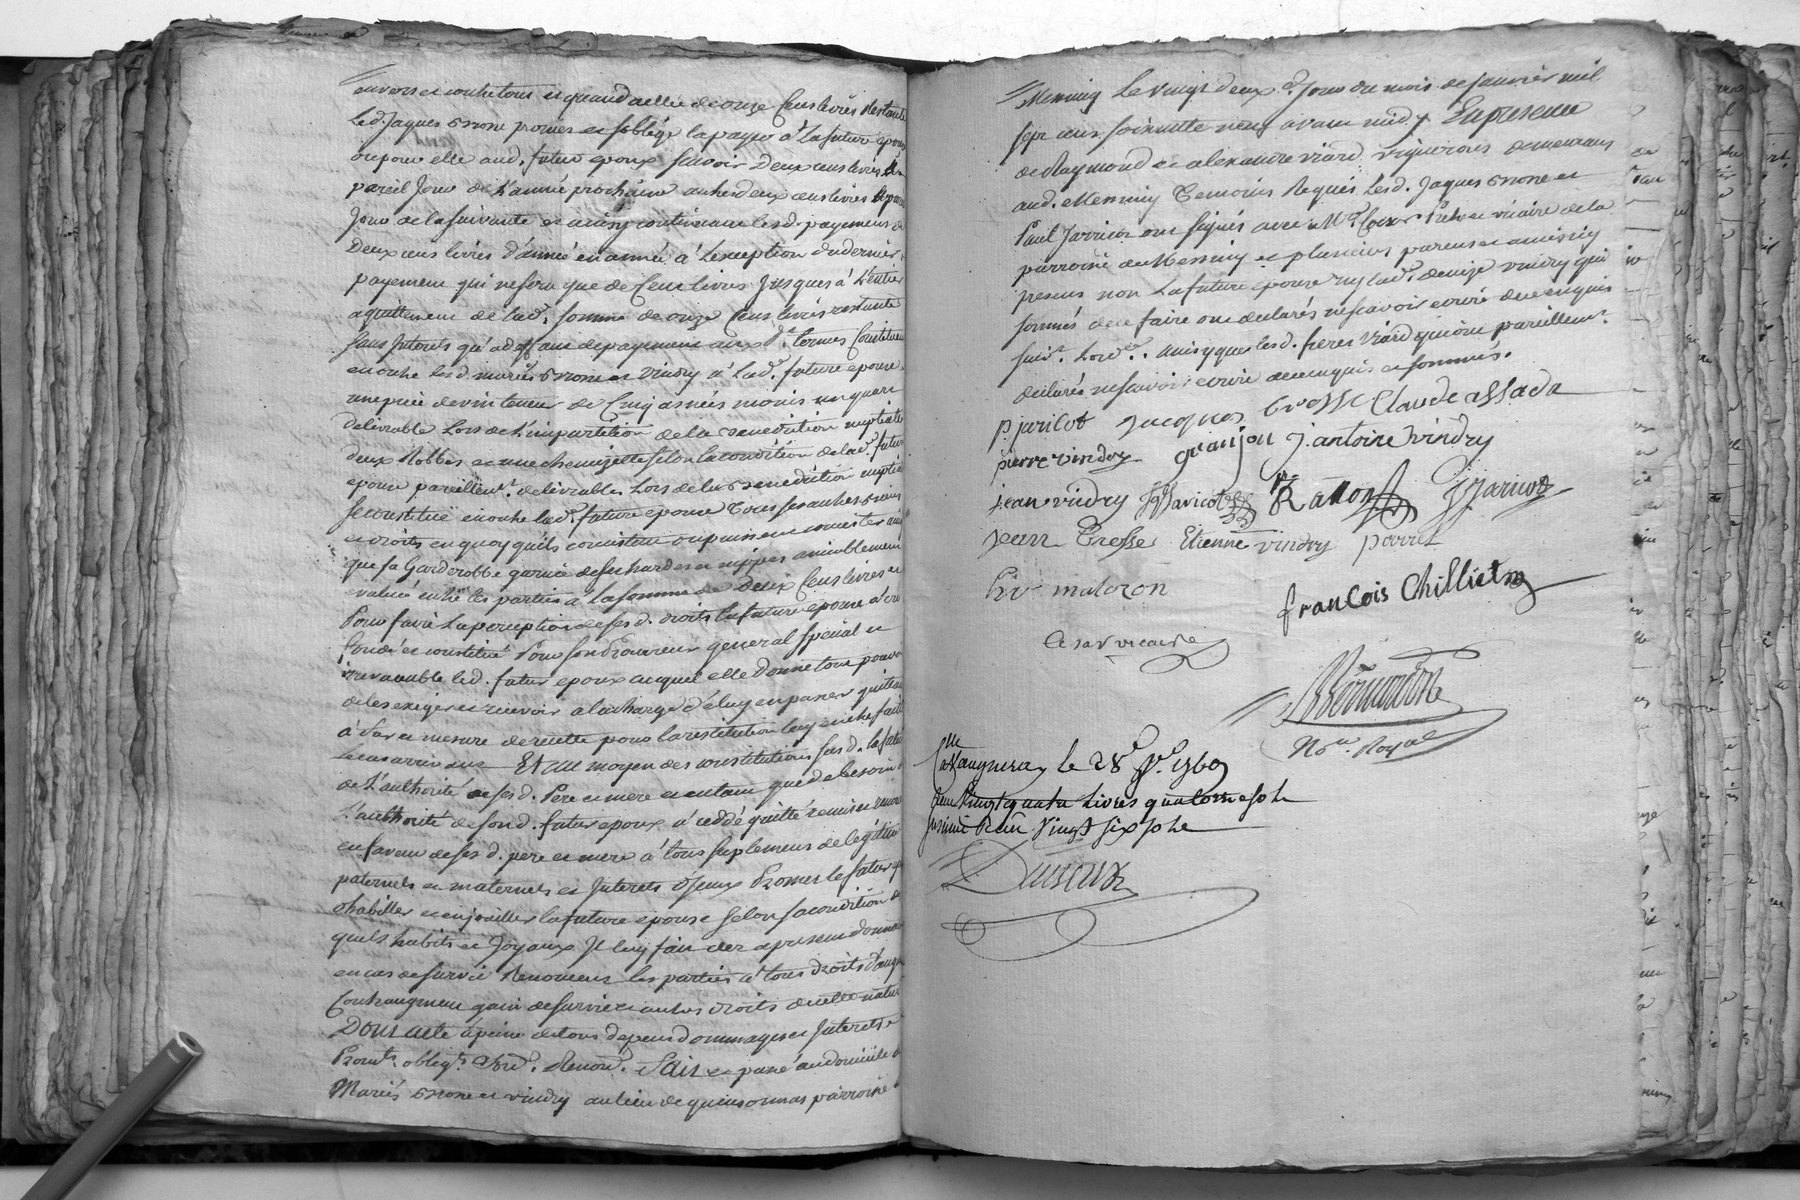 envers et contre tous et quand a celle de onze Cens livres Restante
led. Jaques Brosse promet et soblige la payer à la future épouse
ou pour elle aud. futur epoux savoir Deux cens livres
pareil Jour de L'année prochaine autres deux cens livres
Jour de la suivante et ainsy continuant lesd. payemens de
Deux cens livres d'année en année à L'exception du dernier
payement qui ne sera que de Cent livres Jusques à L'entier
aquittement de lad. somme de onze Cens livres restante
sans Interets qu'a deffaut de payement aux d. termes Constituent
en outre lesd. mariés Brosse et Vindry a lad. future epouse
une de cinq années moins un quart
délivrable Lors de L'impartition de la Benediction nuptiale
deux Robbes et une chemizette selon la condition de lad. future
epouse pareillemt. delivrables Lors de la Benediction nuptiale
se constitue en outre lad. future epouse Tous ses autres Biens
et droits en quoy qu'ils consistent ou puissent consister ainsi
que sa Garderobbe garnie de ses hardes et nippes amiablement
evaluée entre les parties a la somme de Deux Cens livres et
Pour faire La perception de ses d. droits la future epouse a
fondé et constitué Pour son Procureur general special et
irrevocable led. futur epoux auquel elle donne tout pouvoir
de les exiger et recevoir a la charge d'en passer quittance
à fur et mesure de recette pour la restitution luy en etre faite
le cas arrivant Et au moyen des constitutions sus d. la future
de L'authorité de ses d. Pere et mere et en tant que de besoin de
L'authorité de sond. futur epoux a ceddé quitté remis et renoncé
en faveur de ses d. pere et mere à tous suplemens de légitime
paternels et maternels et Interets d'iceux Promet le futur epoux
d'habiller et enjoailler la future epouse selon sa condition
quels habits et Joyaux Il luy fait des a present donnation
en cas de survie Renoncent les parties a tous droits d'augment
Contraugment gain de survie et autres droits de cette nature
DONT ACTE à peine de tous depens dommages et Interets
Promt. obligt. Renon. FAIT et passé au domicile des
Mariés Brosse et Vindry au lieu de quinsonnas parroisse de
Messimy Le vingt deuxe. Jour du mois de Janvier mil
sept cens soixante neuf avant midy En presence
de Raymond et alexandre viard vignerons demeurans
aud. Messimy Temoins Requis Lesd. Jaques Brosse et
Paul Jarricot ont signés avec Mre. Cesar Prêtre vicaire de la
parroisse de Messimy et plusieurs parens et amis icy
presens non La future epouse ny lad. denize vindry qui
sommés de ce faire ont declarés ne scavoir ecrire de ce enquis
suivt. Lord. ainsy que lesd. freres Viard qui ont pareillemt.
declarés ne scavoir ecrire de ce enquis et sommés.
p jaricot Jacques Brosse Claude assada
pierre vindry granjon J. antoine vindry
jean vindry Jaricot Raton Jaricot
Jean Brosse Etienne vindry
matozon
françois Chilliet
Cesar vicaire
Nore. Royal
à Vaugneray le 28e Jer. 1769
vingt quatre Livres quatorze sols
vingt six sols